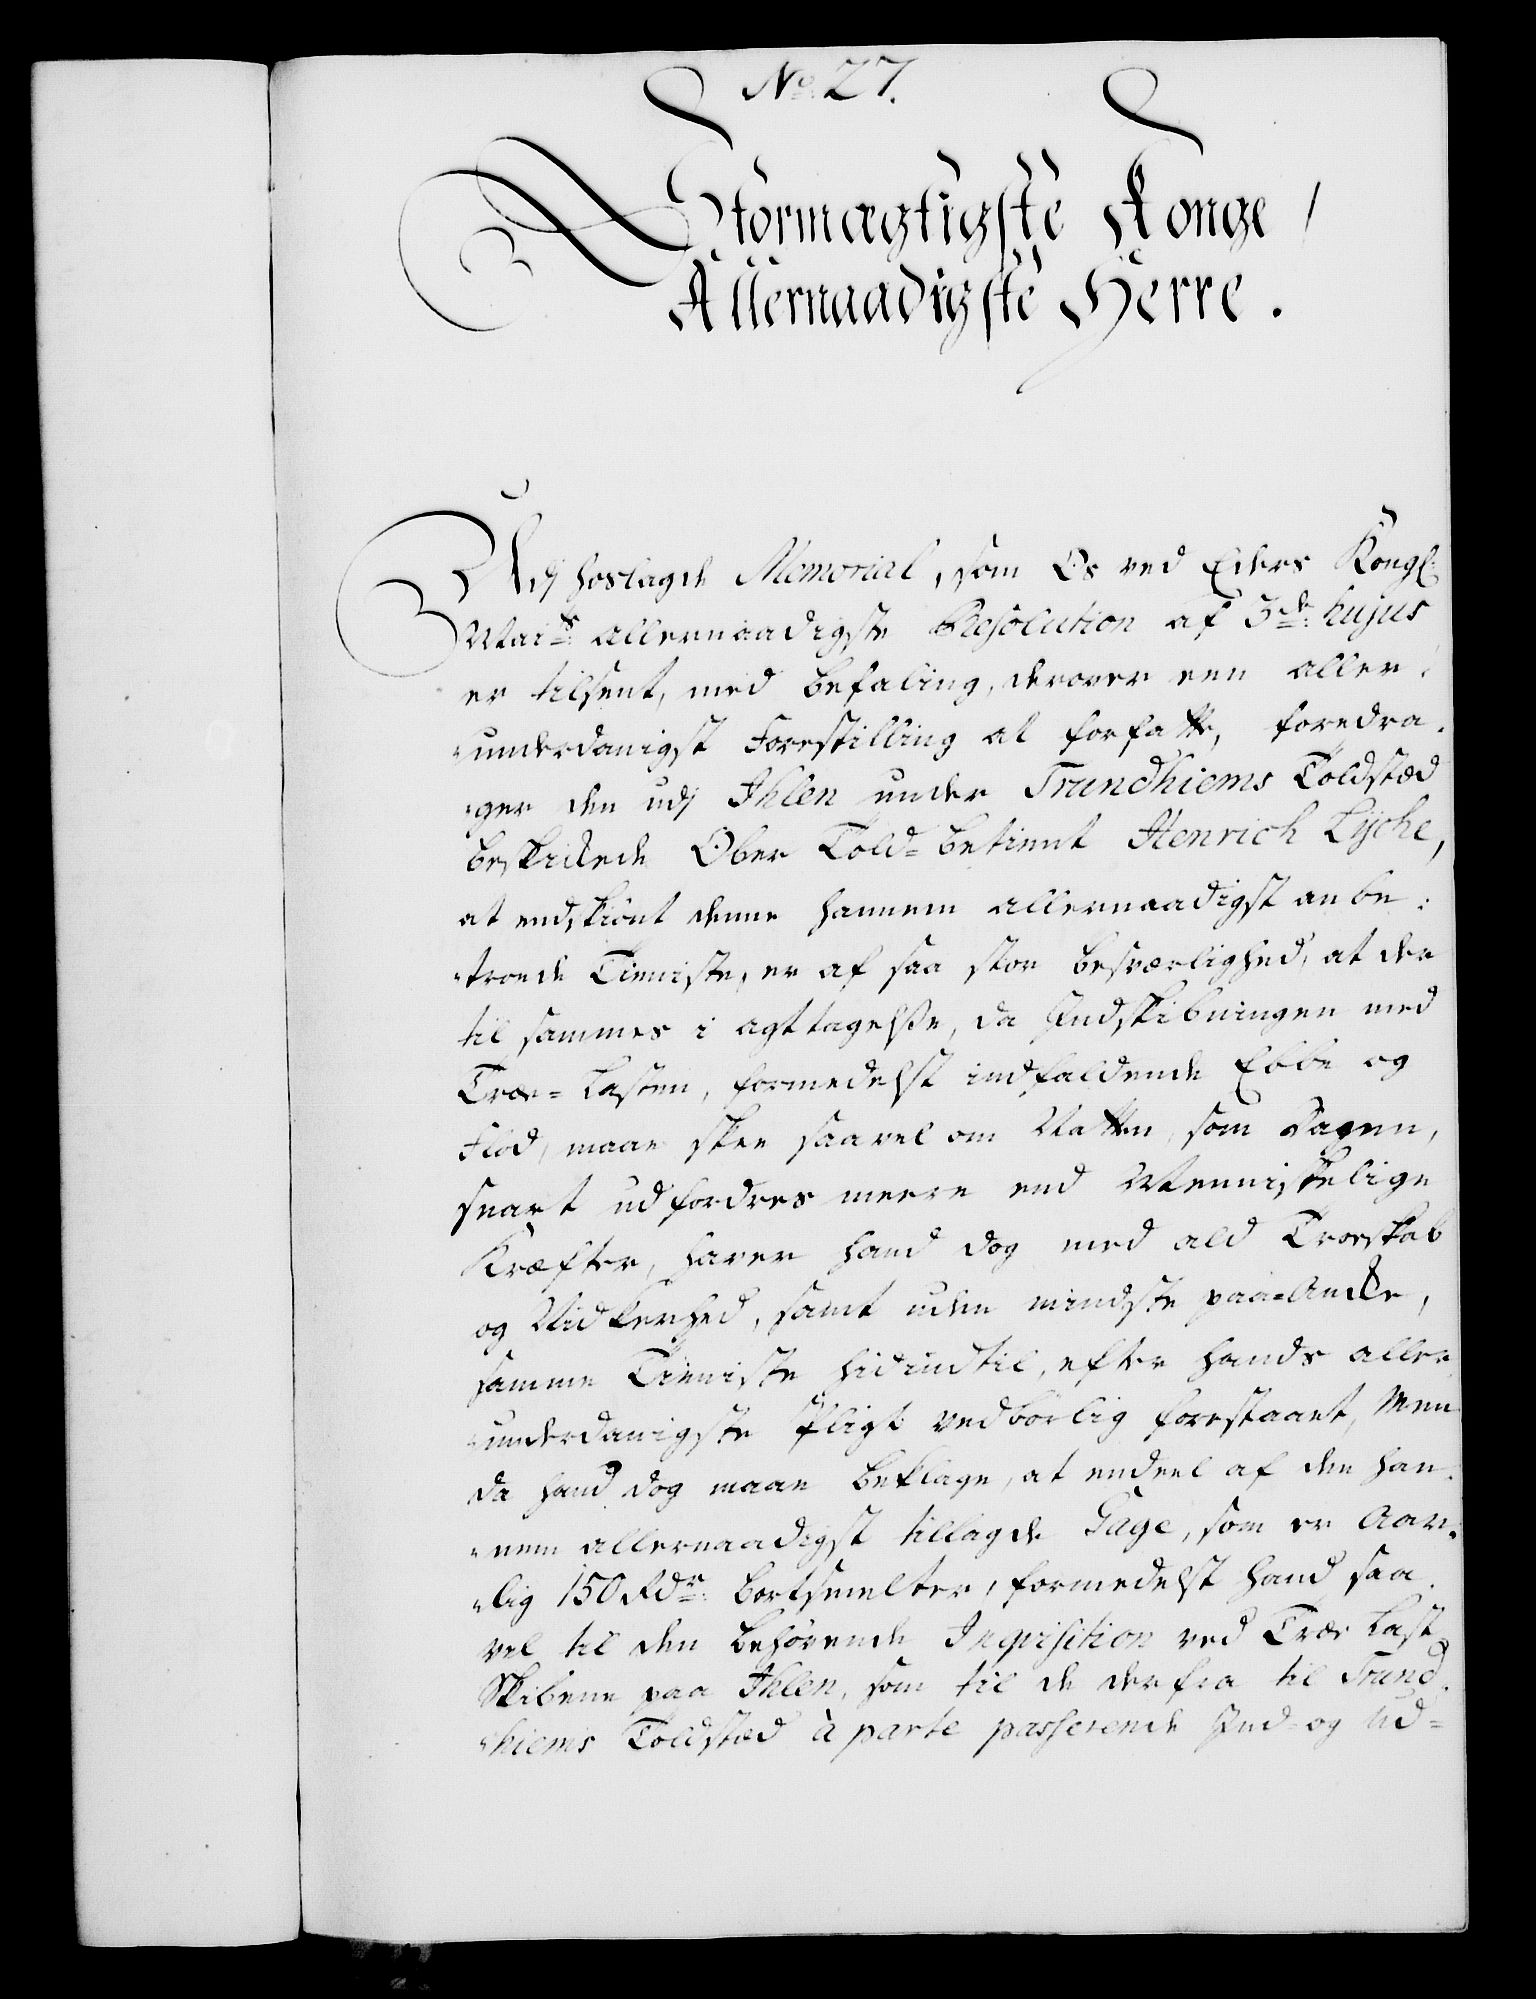 No. 27.
Stormægtigste Konge
Allernaadigste Herre.
Udj hoslagde Memorial, som Os ved Eders Kongl:
Mai:ts allernaadigste Resolution af 3de hujus
er tilsent, med befaling, derover een aller-
underdanigst Forestilling at forfatte, foredra-
ger den udj Ihlen under Trundhiems Toldstæd
beskikkede Ober Told-betient Henrich Lyche,
at endskiönt denne hannem allernaadigst anbe-
troede Tieniste, er af saa stor besværlighed, at der
til sammes i agttagelße, da Indskibningen med
Træe-Lasten, formedelst indfaldende Ebbe og
Flod, maae skee saavel om Natten, som Dagen,
snart udfordres meere end Menniskelige
Kræfter, haver hand dog med ald Troeskab
og Nidkerhed, samt uden mindste paa-Ancke,
samme Tieniste hidindtil, efter hands aller-
underdanigste Pligt vedbörlig forestaaet, Men
da hand dog maae beklage, at endeel af den han-
nem allernaadigst tillagde Gage, som er Aar-
lig 150 Rdr: bortsmelter, formedelst hand saa
vel til den behörende Inqvisition ved Træe Last
Skibene paa Ihlen, som til de derfra til Trund-
hiems Toldstæd à parte passerende Ind- og Ud-